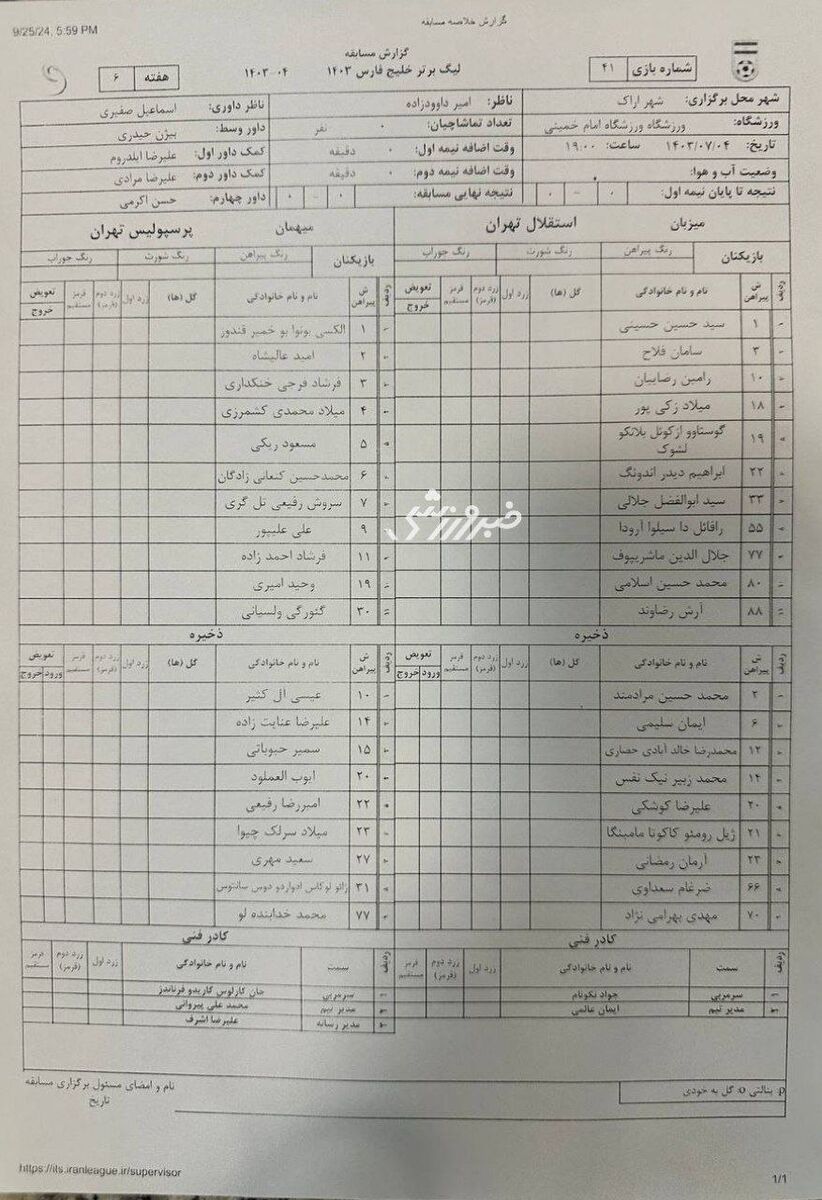 9/25/24, 5:59 PM
گزارش خلاصه مسابقه
گزارش مسابقه
شماره بازی ۴۱
لیگ برتر خلیج فارس ۱۴۰۳ ۰۴-۱۴۰۳
هفته ۶
شهر محل برگزاری: شهر اراک
ناظر: امیر داوودزاده
ناظر داوری: اسماعیل صفیری
ورزشگاه: ورزشگاه ورزشگاه امام خمینی
تعداد تماشاچیان: ۰ نفر
داور وسط: بیژن حیدری
تاریخ: ۱۴۰۳/۰۷/۰۴ ساعت: ۱۹:۰۰
وقت اضافه نیمه اول: ۰ دقیقه
کمک داور اول: علیرضا ایلدروم
وضعیت آب و هوا:
وقت اضافه نیمه دوم: ۰ دقیقه
کمک داور دوم: علیرضا مرادی
نتیجه تا پایان نیمه اول: ۰ - ۰
نتیجه نهایی مسابقه: ۰ - ۰
داور چهارم: حسن اکرمی
میزبان استقلال تهران
میهمان پرسپولیس تهران
بازیکنان رنگ پیراهن رنگ شورت رنگ جوراب
بازیکنان رنگ پیراهن رنگ شورت رنگ جوراب
ردیف ش پیراهن نام و نام خانوادگی گل (ها) زرد اول زرد دوم (قرمز) قرمز مستقیم تعویض خروج
ردیف ش پیراهن نام و نام خانوادگی گل (ها) زرد اول زرد دوم (قرمز) قرمز مستقیم تعویض خروج
۱ سید حسین حسینی
۳ سامان فلاح
۱۰ رامین رضاییان
۱۸ میلاد زکی پور
۱۹ گوستاوو ازکوئل بلانکو لشوک
۲۲ ابراهیم دیدر اندونگ
۳۳ سید ابوالفضل جلالی
۵۵ رافائل دا سیلوا آرودا
۷۷ جلال الدین ماشریپوف
۸۰ محمد حسین اسلامی
۸۸ آرش رضاوند
۱ الکسی بونوا یو خمیر قندور
۲ امید عالیشاه
۳ فرشاد فرجی خنکداری
۴ میلاد محمدی کشمرزی
۵ مسعود ریگی
۶ محمدحسین کنعانی زادگان
۷ سروش رفیعی تل گری
۹ علی علیپور
۱۱ فرشاد احمد زاده
۱۹ وحید امیری
۳۰ گئورگی ولسیانی
خبرورزشی
ذخیره
ذخیره
ردیف ش پیراهن نام و نام خانوادگی گل (ها) زرد اول زرد دوم (قرمز) قرمز مستقیم تعویض ورود خروج
ردیف ش پیراهن نام و نام خانوادگی گل (ها) زرد اول زرد دوم (قرمز) قرمز مستقیم تعویض ورود خروج
۲ محمد حسین مرادمند
۶ ایمان سلیمی
۱۲ محمدرضا خالد آبادی حصاری
۱۴ محمد زبیر نیک نفس
۲۰ علیرضا کوشکی
۲۱ ژیل رومئو کاکوتا مامبنگا
۲۳ آرمان رمضانی
۶۶ ضرغام سعداوی
۷۰ مهدی بهرامی نژاد
۱۰ عیسی ال کثیر
۱۴ علیرضا عنایت زاده
۱۵ سمیر حبوباتی
۲۰ ایوب العملود
۲۲ امیررضا رفیعی
۲۳ میلاد سرلک چیوا
۲۷ سعید مهری
۳۱ ژائو لوکاس ادواردو دوس سانتوس
۷۷ محمد خدابنده لو
کادر فنی
کادر فنی
ردیف سمت نام و نام خانوادگی زرد اول زرد دوم (قرمز) قرمز مستقیم
ردیف سمت نام و نام خانوادگی زرد اول زرد دوم (قرمز) قرمز مستقیم
سرمربی جواد نکونام
مدیر تیم ایمان عالمی
سرمربی خان کارلوس گاریدو فرناندز
مدیر تیم محمد علی پیروانی
مدیر رسانه علیرضا اشرف
p: پنالتی o: گل به خودی
نام و امضای مسئول برگزاری مسابقه
تاریخ
https://its.iranleague.ir/supervisor
1/1